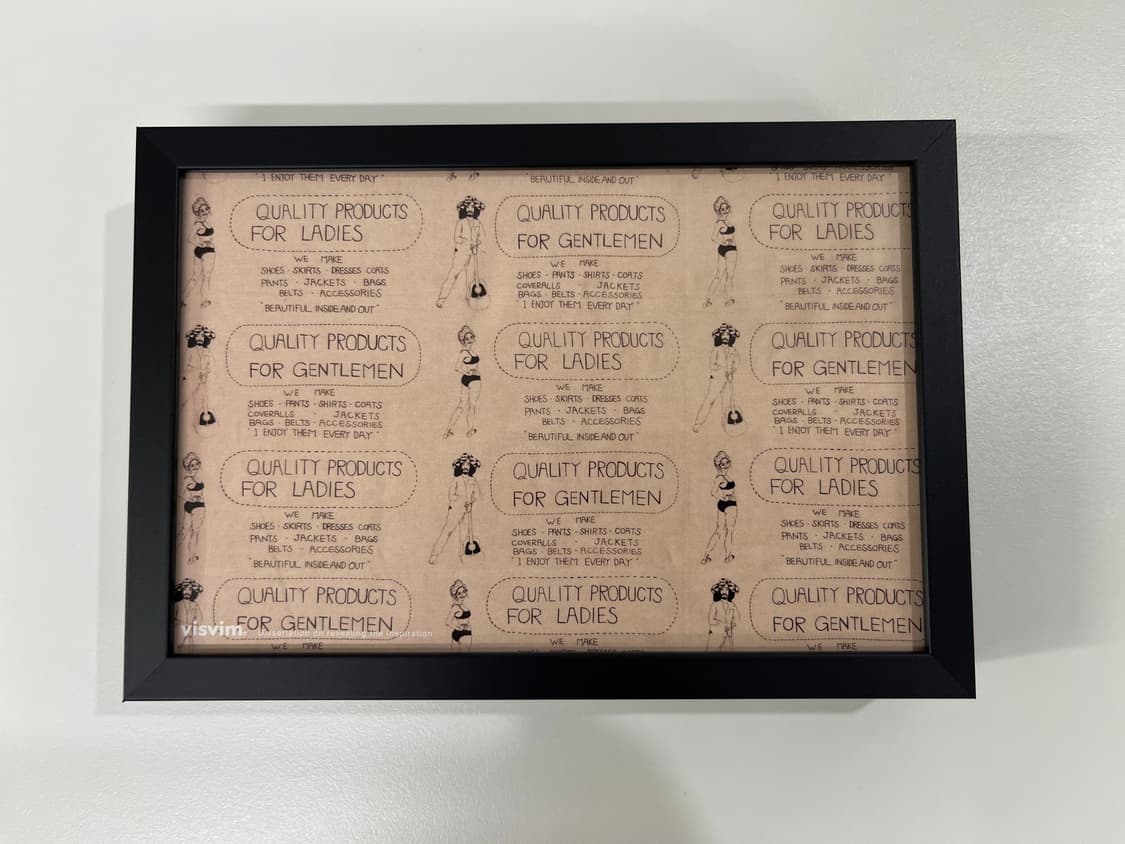 "I ENJOY THEM EVERY DAY"
"BEAUTIFUL INSIDE AND OUT"
"I ENJOY THEM EVERY DAY"
QUALITY PRODUCTS
FOR LADIES
WE MAKE
SHOES · SKIRTS · DRESSES COATS
PANTS · JACKETS · BAGS
BELTS · ACCESSORIES
"BEAUTIFUL INSIDE AND OUT"
QUALITY PRODUCTS
FOR GENTLEMEN
WE MAKE
SHOES · PANTS · SHIRTS · COATS
COVERALLS · JACKETS
BAGS · BELTS · ACCESSORIES
"I ENJOY THEM EVERY DAY"
QUALITY PRODUCTS
FOR LADIES
WE MAKE
SHOES · SKIRTS · DRESSES COATS
PANTS · JACKETS · BAGS
BELTS · ACCESSORIES
"BEAUTIFUL INSIDE AND OUT"
QUALITY PRODUCTS
FOR GENTLEMEN
WE MAKE
SHOES · PANTS · SHIRTS · COATS
COVERALLS · JACKETS
BAGS · BELTS · ACCESSORIES
"I ENJOY THEM EVERY DAY"
QUALITY PRODUCTS
FOR LADIES
WE MAKE
SHOES · SKIRTS · DRESSES COATS
PANTS · JACKETS · BAGS
BELTS · ACCESSORIES
"BEAUTIFUL INSIDE AND OUT"
QUALITY PRODUCTS
FOR GENTLEMEN
WE MAKE
SHOES · PANTS · SHIRTS · COATS
COVERALLS · JACKETS
BAGS · BELTS · ACCESSORIES
"I ENJOY THEM EVERY DAY"
QUALITY PRODUCTS
FOR LADIES
WE MAKE
SHOES · SKIRTS · DRESSES COATS
PANTS · JACKETS · BAGS
BELTS · ACCESSORIES
"BEAUTIFUL INSIDE AND OUT"
QUALITY PRODUCTS
FOR GENTLEMEN
WE MAKE
SHOES · PANTS · SHIRTS · COATS
COVERALLS · JACKETS
BAGS · BELTS · ACCESSORIES
"I ENJOY THEM EVERY DAY"
QUALITY PRODUCTS
FOR LADIES
WE MAKE
SHOES · SKIRTS · DRESSES COATS
PANTS · JACKETS · BAGS
BELTS · ACCESSORIES
"BEAUTIFUL INSIDE AND OUT"
QUALITY PRODUCTS
FOR GENTLEMEN
WE MAKE
QUALITY PRODUCTS
FOR LADIES
WE MAKE
QUALITY PRODUCTS
FOR GENTLEMEN
WE MAKE
visvim Dissertation on revealing the inspiration